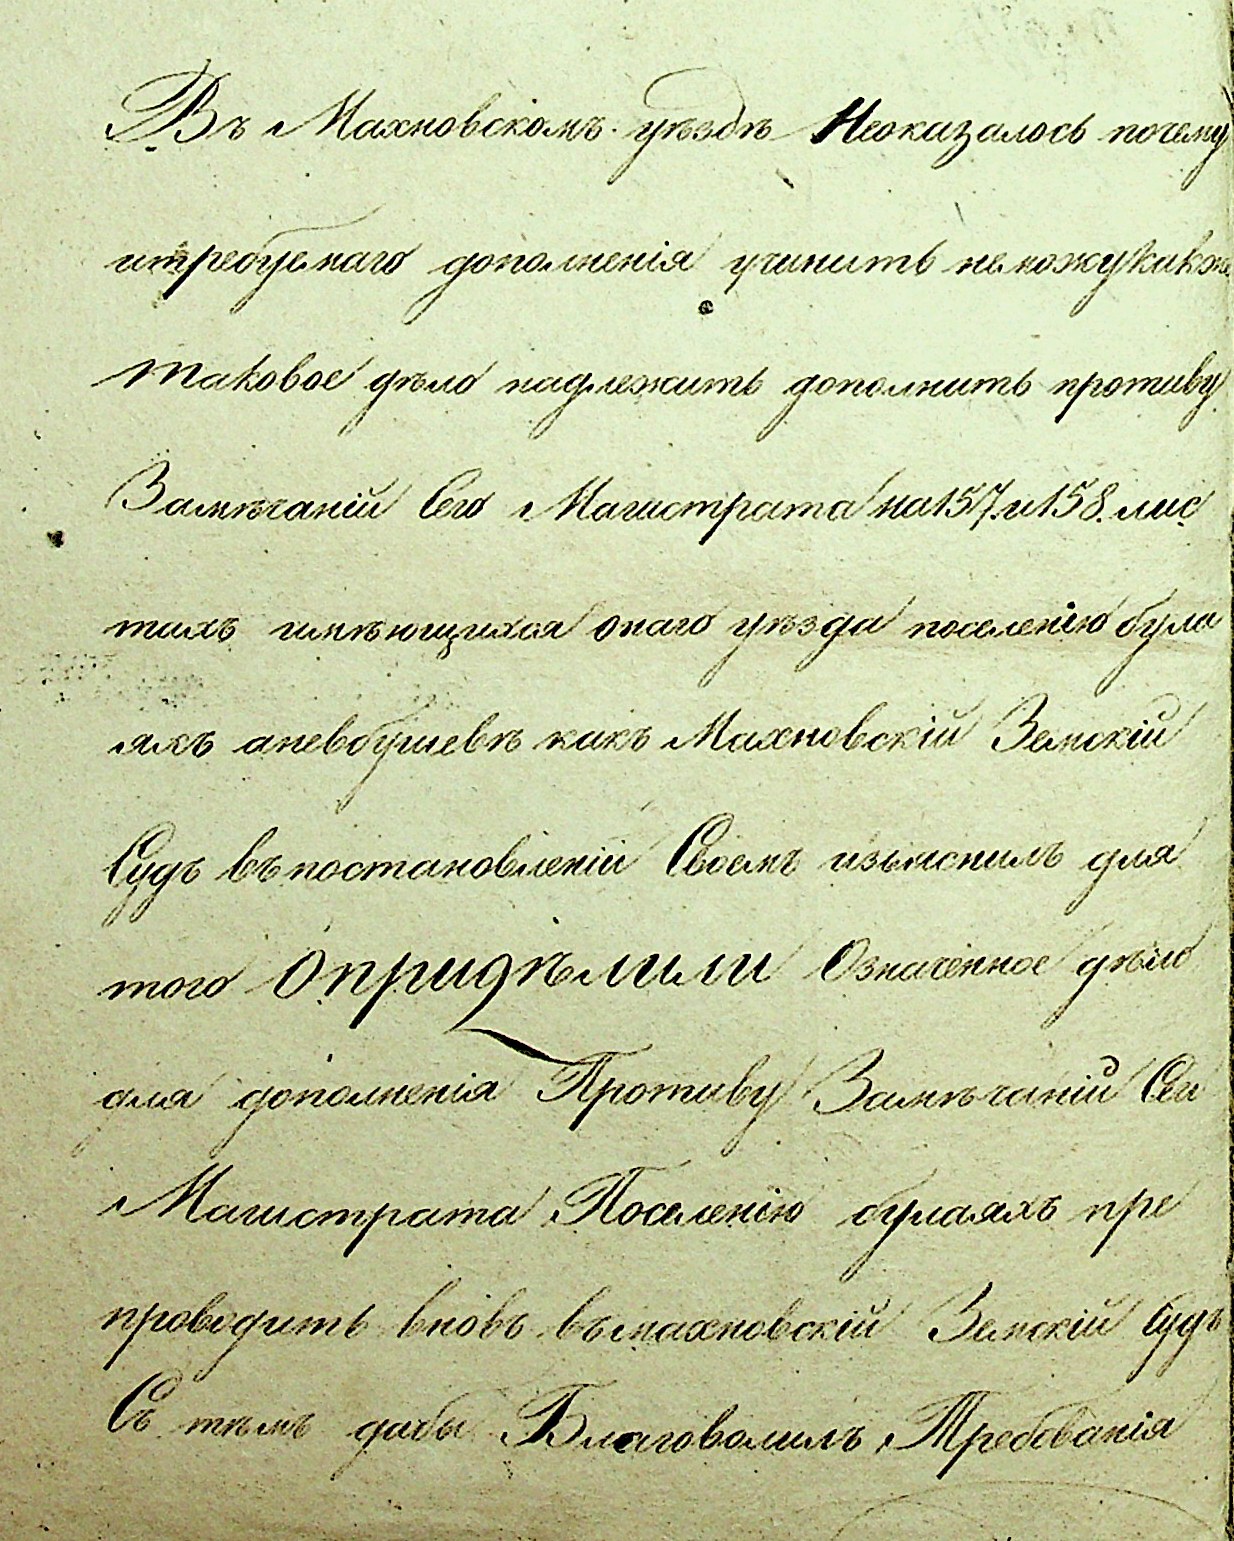 Въ Махновскомъ уѣздѣ Неоказалось почему
итребуемаго дополненія учинить неможу какже
таковое дѣло надлежитъ дополнить противу
Замѣчаній Сего Магистрата на 157. и 158. лис
тахъ имѣющихся онаго уѣзда поселенію була
яхъ аневбушевѣ какъ Махновскій Земскій
Судъ въ постановленіи Своемъ изъяснилъ для
того Опридѣлили Означенное дѣло
для дополненія Противу Замѣчаній Сего
Магистрата Поселенію булаяхъ пре
проводить вновь въ махновскій Земскій Судъ
Съ тѣмъ дабы Благоволилъ Требованія